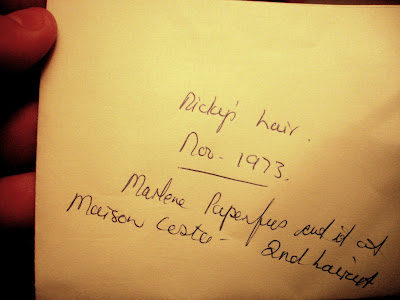 Ricky's hair.
Nov. 1973.
Marlene Paperfus cut it at
Maison Costa - 2nd haircut